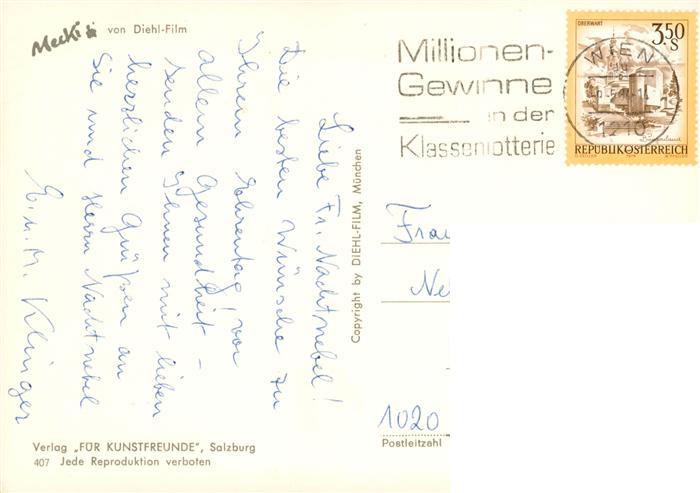 Mecki von Diehl-Film
Liebe Fr. Nachtnebel!
Die besten Wünsche zu
Ihrem Ehrentag! vor
allem Gesundheit -
senden Ihnen mit lieben
herzlichen Grüßen an
Sie und Herrn Nachtnebel
E. u. M. Klinger
Verlag „FÜR KUNSTFREUNDE", Salzburg
407 Jede Reproduktion verboten
Copyright by DIEHL-FILM, München
Millionen-
Gewinne
in der
Klassenlotterie
WIEN
1210
OBERWART
3.50
S
Burgenland
REPUBLIK ÖSTERREICH
Frau
1020
Postleitzahl